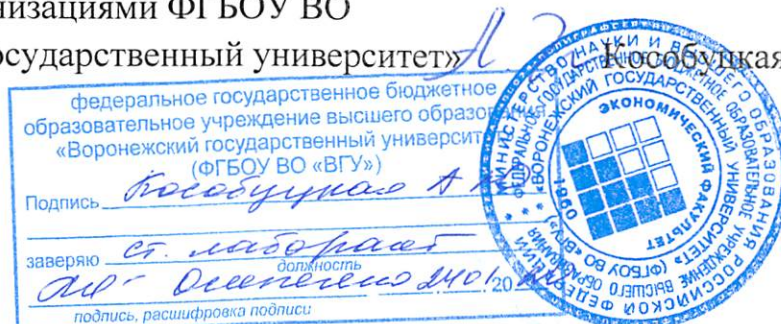 низациями ФГБОУ ВО
осударственный университет» Кособуцкая
федеральное государственное бюджетное
образовательное учреждение высшего образования
«Воронежский государственный университет»
(ФГБОУ ВО «ВГУ»)
Подпись Кособуцкая А
заверяю ст. лаборант
должность
24 01 20
подпись, расшифровка подписи
ЭКОНОМИЧЕСКИЙ ФАКУЛЬТЕТ
«ВОРОНЕЖСКИЙ ГОСУДАРСТВЕННЫЙ УНИВЕРСИТЕТ» (ФГБОУ ВО «ВГУ»)